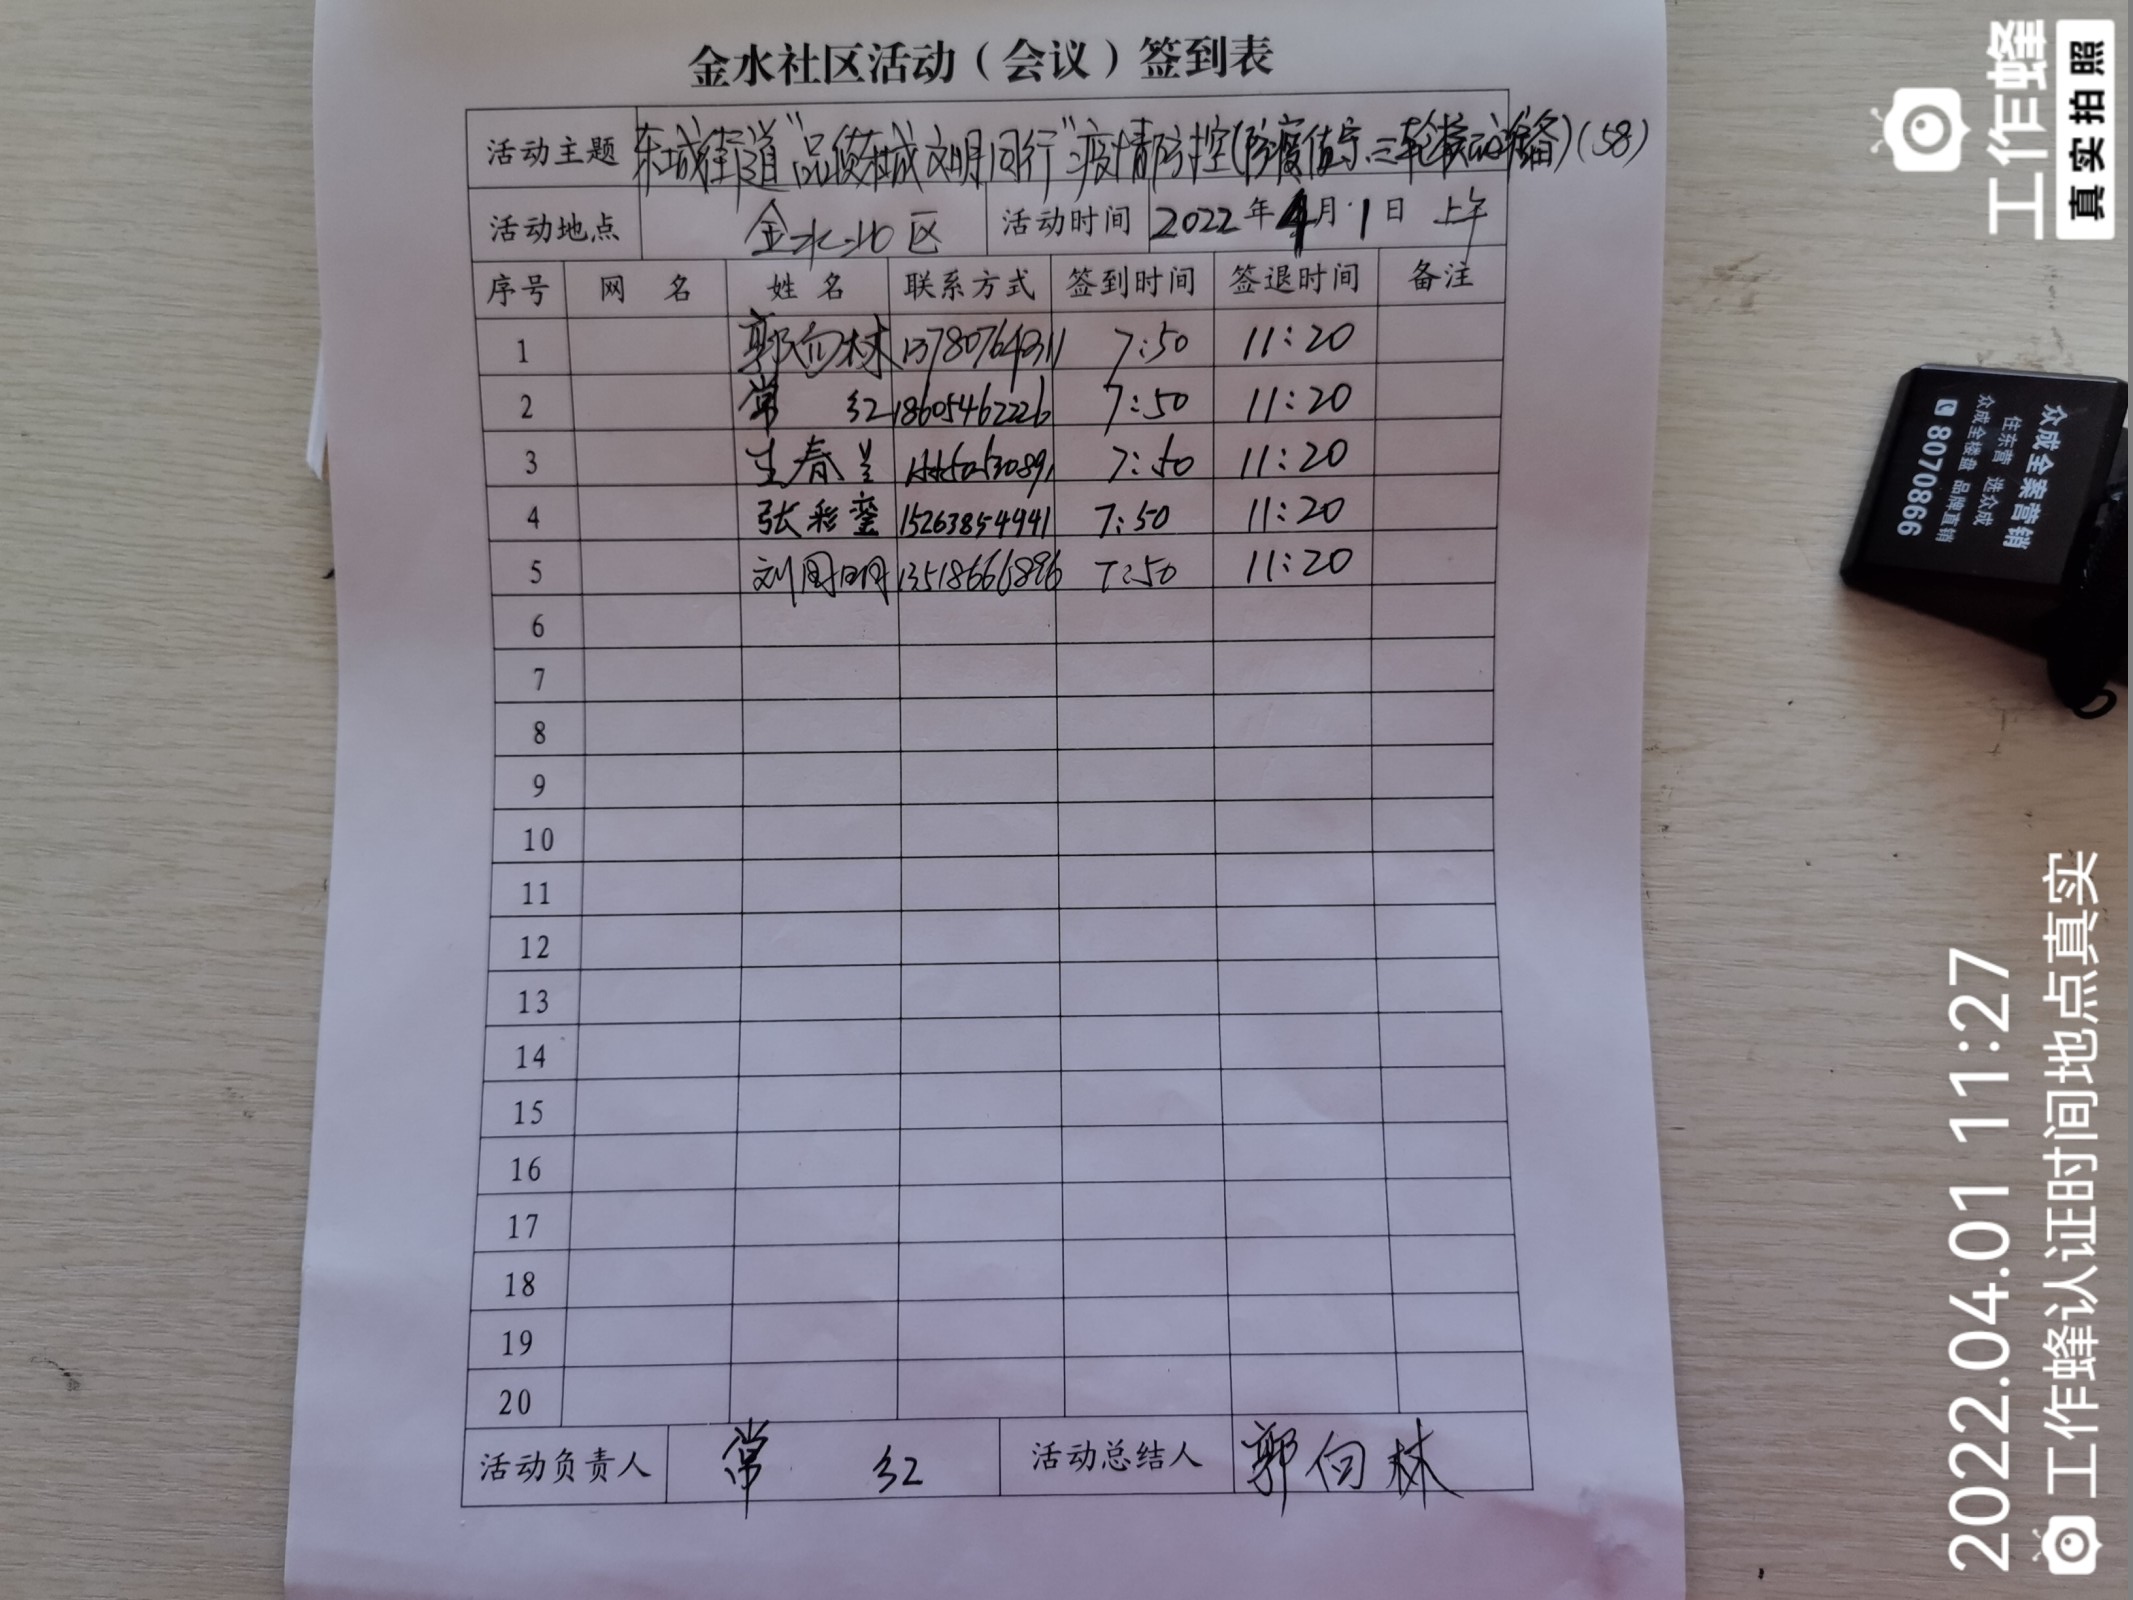 金水社区活动（会议）签到表
活动主题 东城街道"品质东城 文明同行"疫情防控(防疫值守、三轮核酸准备)(58)
活动地点 金水北区 活动时间 2022年4月1日 上午
序号 网 名 姓 名 联系方式 签到时间 签退时间 备注
1 郭向林 13780764311 7:50 11:20
2 常 红 18605462226 7:50 11:20
3 生春兰 7:50 11:20
4 张彩銮 15263854941 7:50 11:20
5 刘国明 13518666896 7:50 11:20
6
7
8
9
10
11
12
13
14
15
16
17
18
19
20
活动负责人 常 红 活动总结人 郭向林
工作蜂
真实拍照
众成全案营销
住东营 选众成
众成全楼盘 品牌直销
8070866
2022.04.01 11:27
工作蜂认证时间地点真实